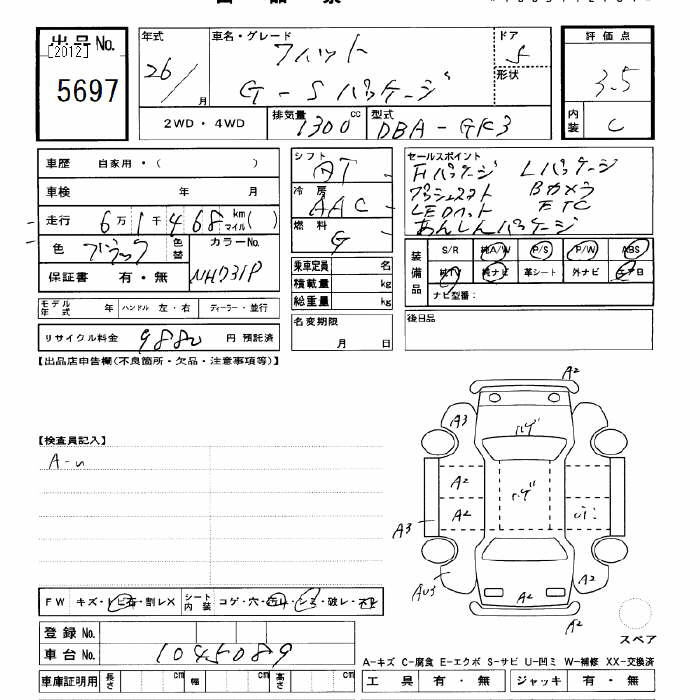 出品No.
[2012]
5697
年式
26/
月
車名・グレード
フィット
G-Sパッケージ
ドア
5
形状
評価点
3.5
内装
C
2WD・4WD
排気量
1300
cc
型式
DBA-GK3
車歴 自家用・( )
車検 年 月
走行 6万1千468km マイル( )
色 ブラック
色替
カラーNo.
NH731P
保証書 有・無
モデル年式 年 ハンドル 左・右 ディーラー・並行
リサイクル料金 9880 円 預託済
シフト
AT
冷房
AAC
燃料
G
乗車定員 名
積載量 kg
総重量 kg
名変期限
月 日
セールスポイント
Fパッケージ Lパッケージ
プッシュスタート Bカメラ
LEDヘッド ETC
あんしんパッケージ
装備品
S/R 純A/W P/S P/W ABS
純TV 純ナビ 革シート 外ナビ エアB
ナビ型番:
後日品
【出品店申告欄(不良箇所・欠品・注意事項等)】
【検査員記入】
A-u
A2
A3
ハゲ
A2
ハゲ
A2
A3
A2
A2
A2
FW キズ・トビ石・割レX シート内装 コゲ・穴・
・シミ・破レ・
登録No.
車台No. 1045089
車庫証明用 長さ cm 幅 cm 高さ cm
スペア
A-キズ C-腐食 E-エクボ S-サビ U-凹ミ W-補修 XX-交換済
工具 有・無 ジャッキ 有・無